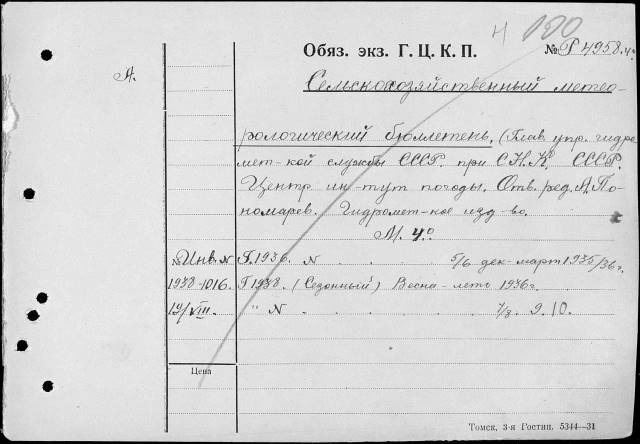 Ч 190
Обяз. экз. Г. Ц. К. П. № Р 4958. 4°
А.
Сельскохозяйственный метео-
рологический бюллетень, (Глав. упр. гидро
мет-кой службы СССР. при С.Н.К. СССР.
Центр. ин-тут погоды. Отв. ред. А. По-
номарев. Гидромет-кое изд-во.
М. 4°
№ Инв. N Г. 1936. N . . . . 5/6 дек-март 1935/36 г.
1938-1016. Г 1938 (Сезонный) Весна-лето 1936 г.
19/VIII. " N . . . . 7/8. 9. 10.
Цена
Томск, 3-я Гостип. 5344—31